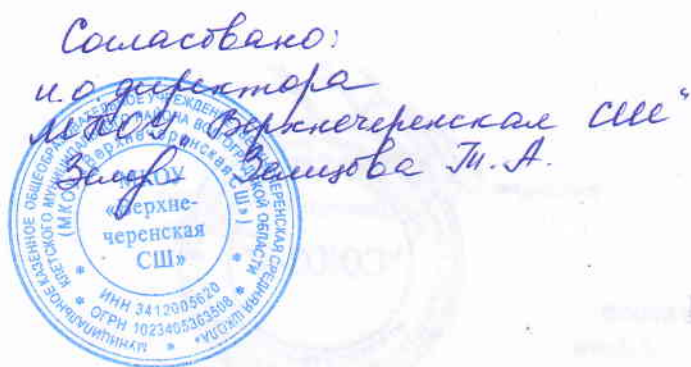 Согласовано:
и.о. директора
МКОУ „Верхнечеренская СШ"
Т.А.
МУНИЦИПАЛЬНОЕ КАЗЕННОЕ ОБЩЕОБРАЗОВАТЕЛЬНОЕ УЧРЕЖДЕНИЕ ВЕРХНЕЧЕРЕНСКАЯ СРЕДНЯЯ ШКОЛА»
КЛЕТСКОГО МУНИЦИПАЛЬНОГО РАЙОНА ВОЛГОГРАДСКОЙ ОБЛАСТИ
(МКОУ «Верхнечеренская СШ»)
МКОУ
«Верхне-
черенская
СШ»
ИНН 3412005620
ОГРН 1023405363508